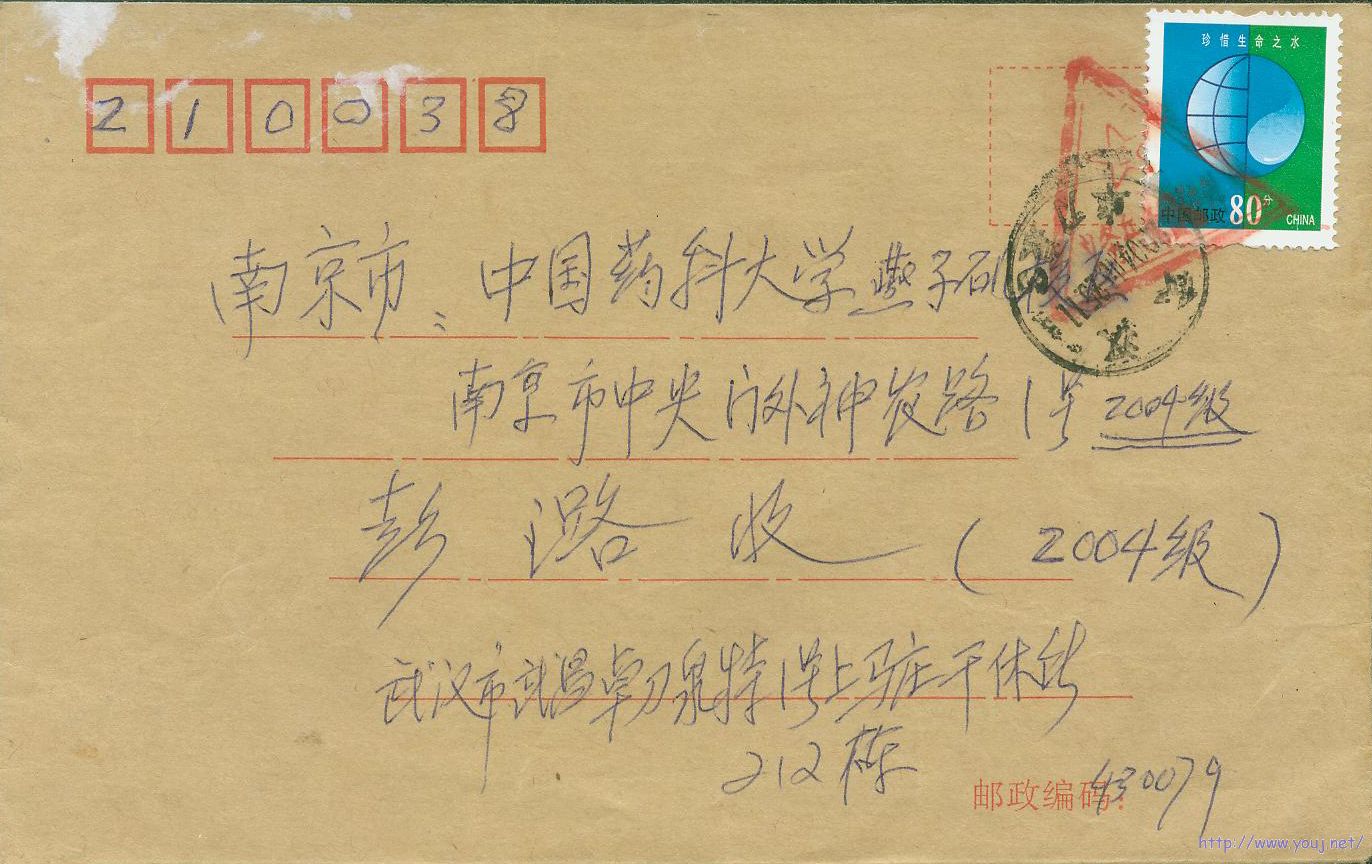 珍惜生命之水
210038
中国邮政 80分 CHINA
南京市、中国药科大学燕子矶校
南京市中央门外神农路1号 2004级
彭 潞 收 (2004级)
武汉市武昌卓刀泉特1号上马庄干休所
212栋
邮政编码: 430079
http://www.youj.net/